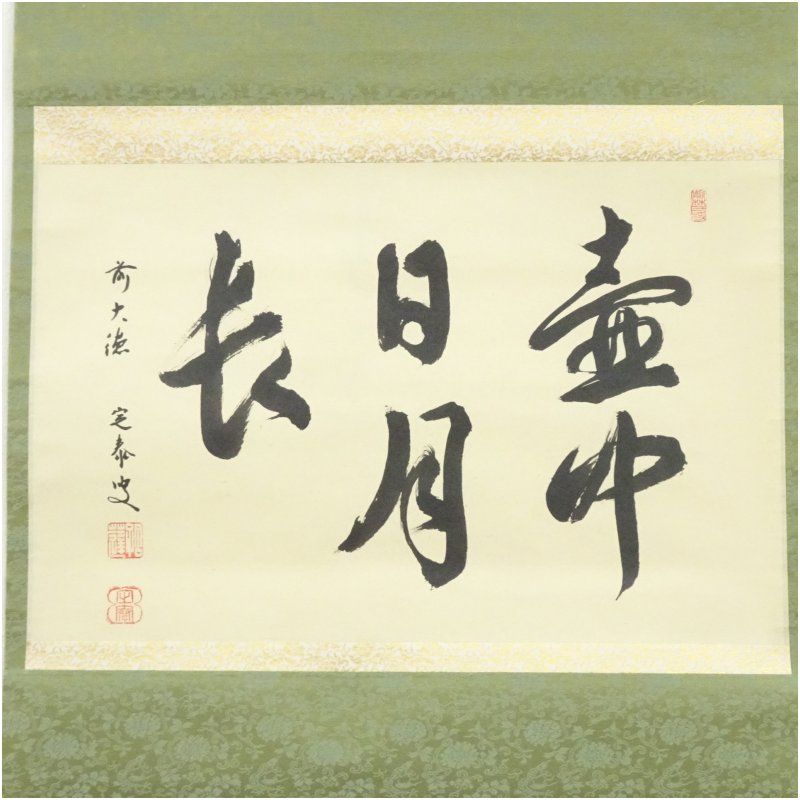 壷中
日月
長
前大徳 宅泰叟